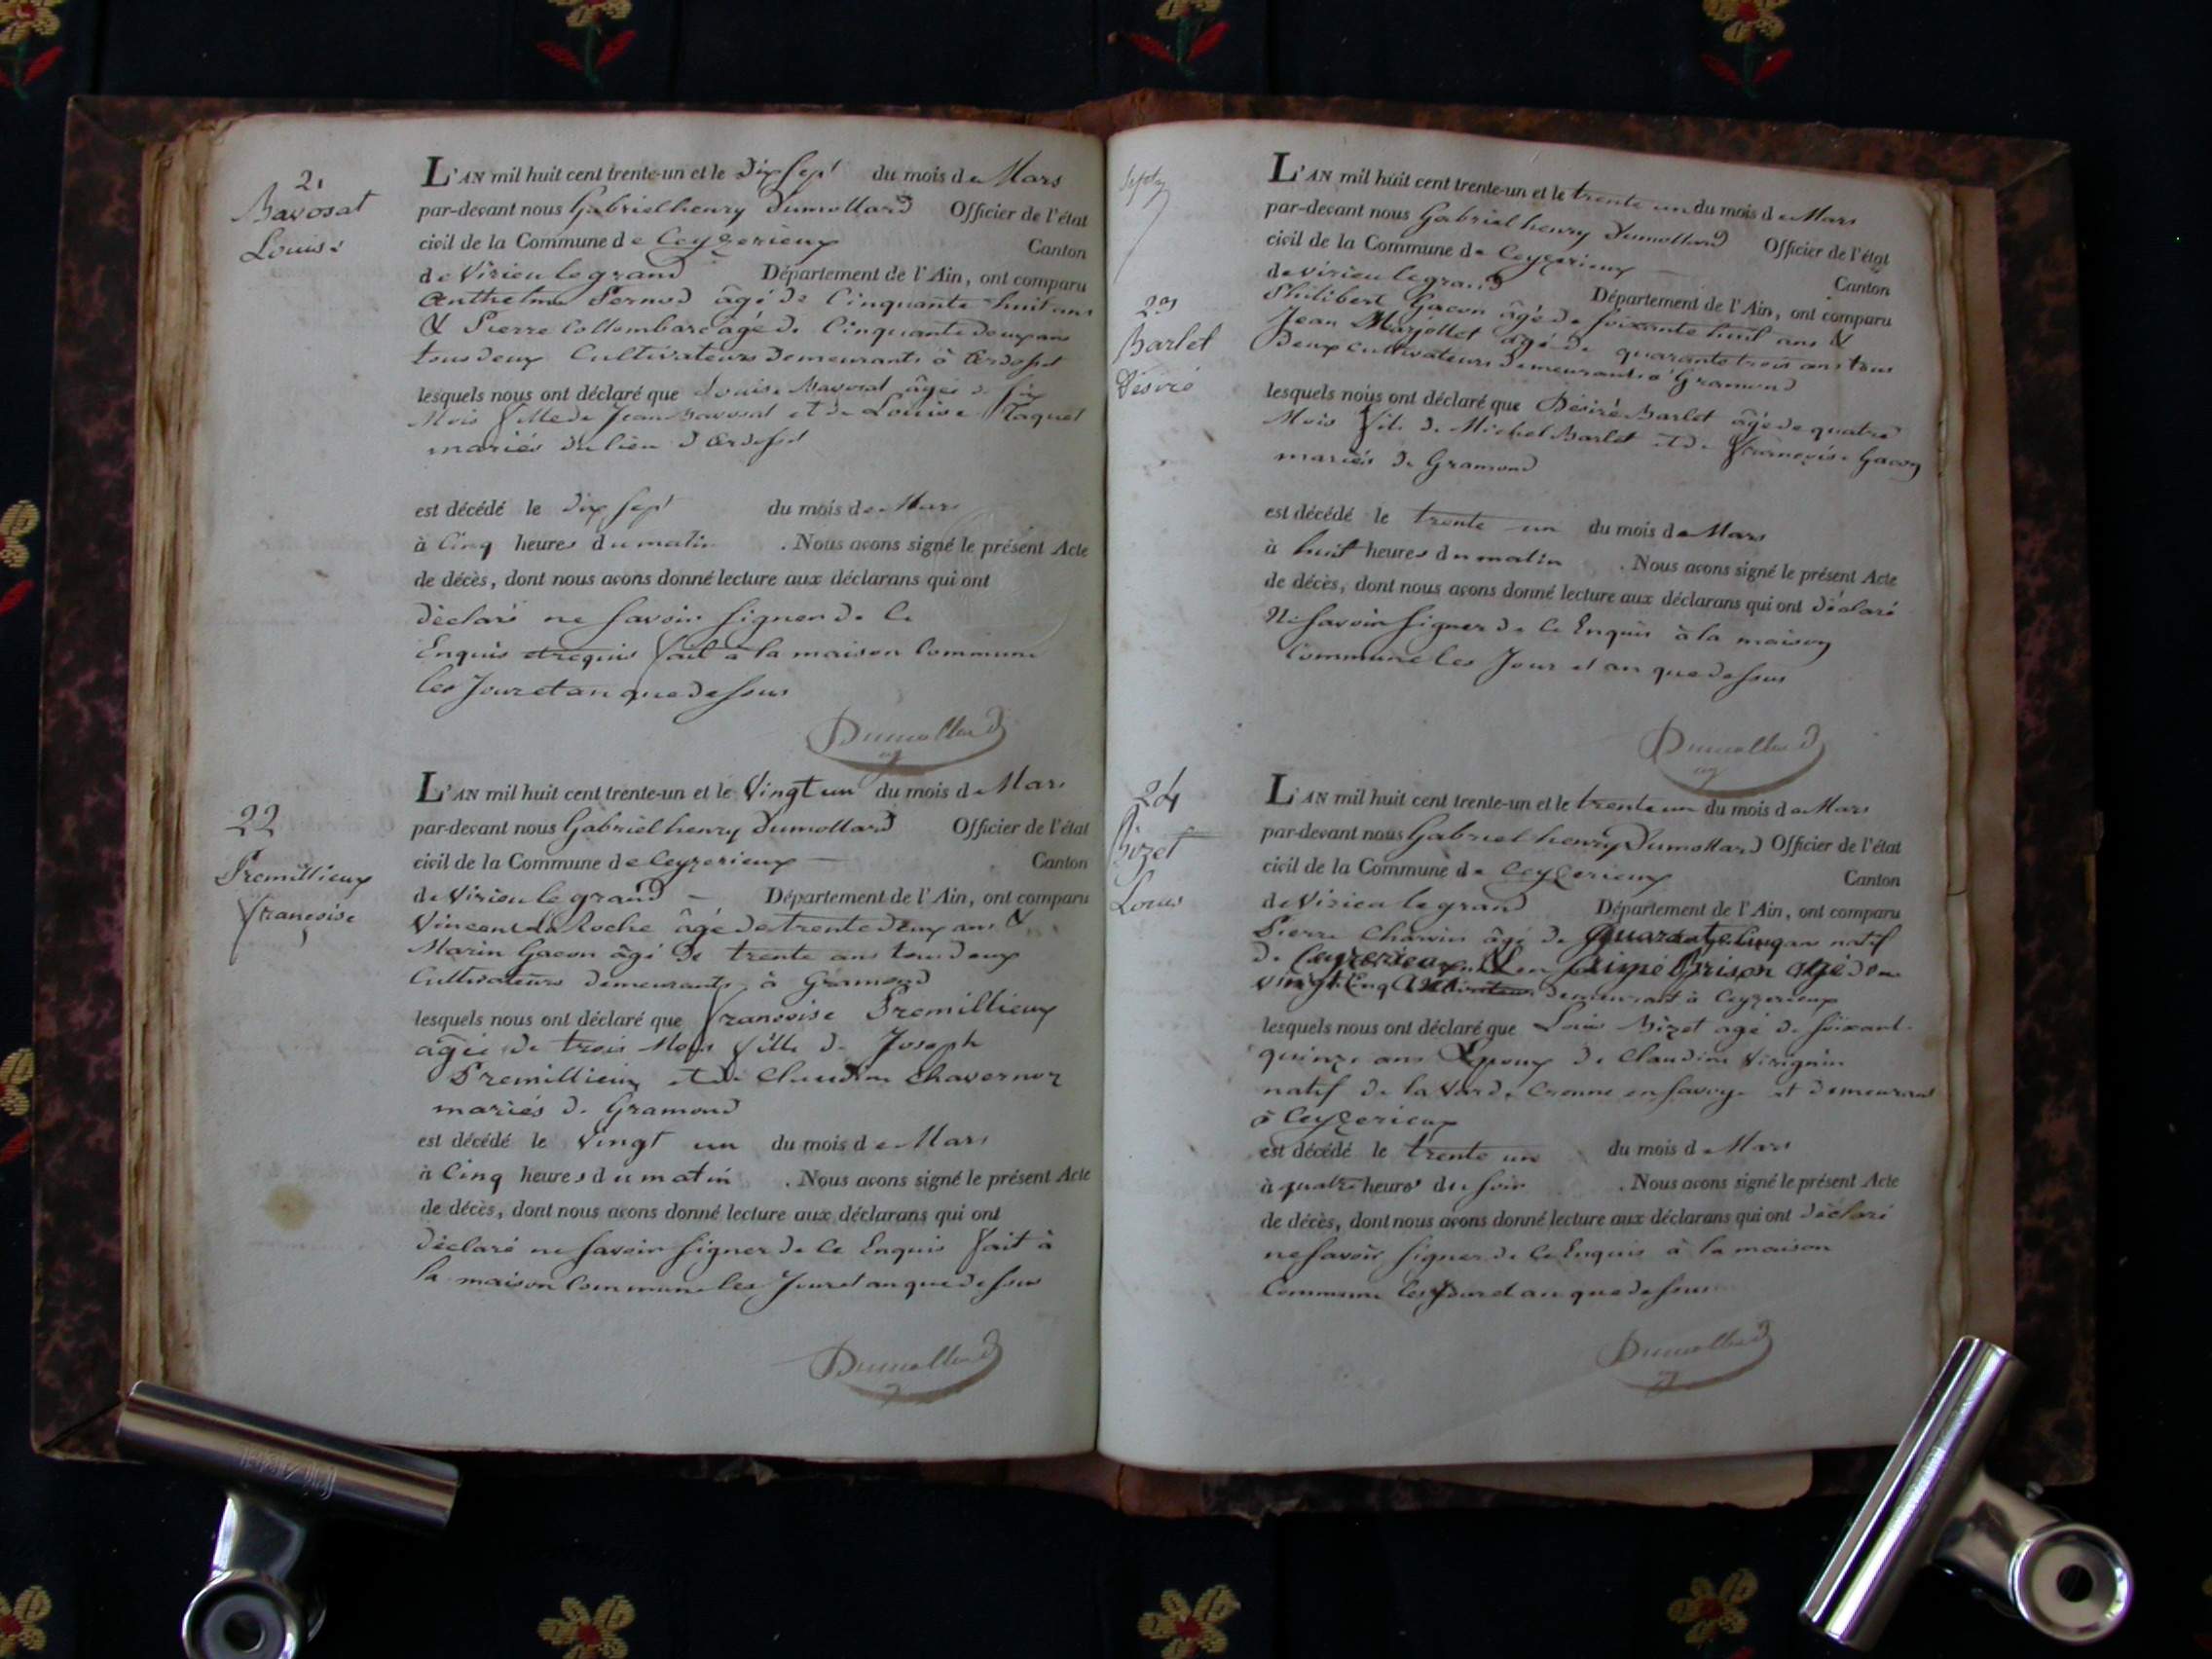 21
Bavosat
Louise
L'AN mil huit cent trente-un et le dix sept du mois de Mars
par-devant nous Gabriel henry Dumollard Officier de l'état
civil de la Commune de Ceyzerieux Canton
de Virieu le grand Département de l'Ain, ont comparu
Anthelme Pernod âgé de Cinquante huit ans
& Pierre Collombar agé de Cinquante deux ans
tous deux Cultivateurs demeurants à
lesquels nous ont déclaré que Louise Bavosat âgée de six
Mois fille de Jean Bavosat et de Louise
mariés du lieu d
est décédé le dix sept du mois de Mars
à Cinq heures du matin . Nous avons signé le présent Acte
de décès, dont nous avons donné lecture aux déclarans qui ont
déclaré ne savoir signer de ce
Enquis et requis fait à la maison Commune
les Jour et an que dessus
Dumollard
22
Premillieux
françoise
L'AN mil huit cent trente-un et le Vingt un du mois de Mars
par-devant nous Gabriel henry Dumollard Officier de l'état
civil de la Commune de Ceyzerieux Canton
de Virieu le grand Département de l'Ain, ont comparu
Vincent Roche âgé de trente deux ans &
Marin Gacon âgé de trente ans tous deux
Cultivateurs demeurants à Gramond
lesquels nous ont déclaré que françoise Premillieux
agée de trois Mois fille de Joseph
Premillieux et de Claudine Chavernoz
mariés de Gramond
est décédé le Vingt un du mois de Mars
à Cinq heures du matin . Nous avons signé le présent Acte
de décès, dont nous avons donné lecture aux déclarans qui ont
déclaré ne savoir signer de ce Enquis fait à
la maison Commune les Jour et an que dessus
Dumollard
23
Barlet
Désiré
L'AN mil huit cent trente-un et le trente un du mois de Mars
par-devant nous Gabriel henry Dumollard Officier de l'état
civil de la Commune de Ceyzerieux Canton
de Virieu le grand Département de l'Ain, ont comparu
Philibert Gacon âgé de soixante huit ans &
Jean Marjollet agé de quarante trois ans tous
Deux cultivateurs demeurants à Gramond
lesquels nous ont déclaré que Désiré Barlet âgé de quatre
Mois fils de Michel Barlet et de françoise Gacon
mariés de Gramond
est décédé le trente un du mois de Mars
à huit heures du matin . Nous avons signé le présent Acte
de décès, dont nous avons donné lecture aux déclarans qui ont déclaré
Ne savoir signer de ce Enquis à la maison
Commune les Jour et an que dessus
Dumollard
24
Bizet
Louis
L'AN mil huit cent trente-un et le trente un du mois de Mars
par-devant nous Gabriel henry Dumollard Officier de l'état
civil de la Commune de Ceyzerieux Canton
de Virieu le grand Département de l'Ain, ont comparu
Pierre Charvin âgé de quarante Cinq ans natif
de Ceyzerieux & Brison agé de
vingt Cinq demeurant à Ceyzerieux
lesquels nous ont déclaré que Louis Bizet agé de soixante
quinze ans Epoux de Claudine
natif de la en Savoye et demeurant
à Ceyzerieux
est décédé le trente un du mois de Mars
à quatre heures du soir . Nous avons signé le présent Acte
de décès, dont nous avons donné lecture aux déclarans qui ont déclaré
ne savoir signer de ce Enquis à la maison
Commune les Jour et an que dessus
Dumollard